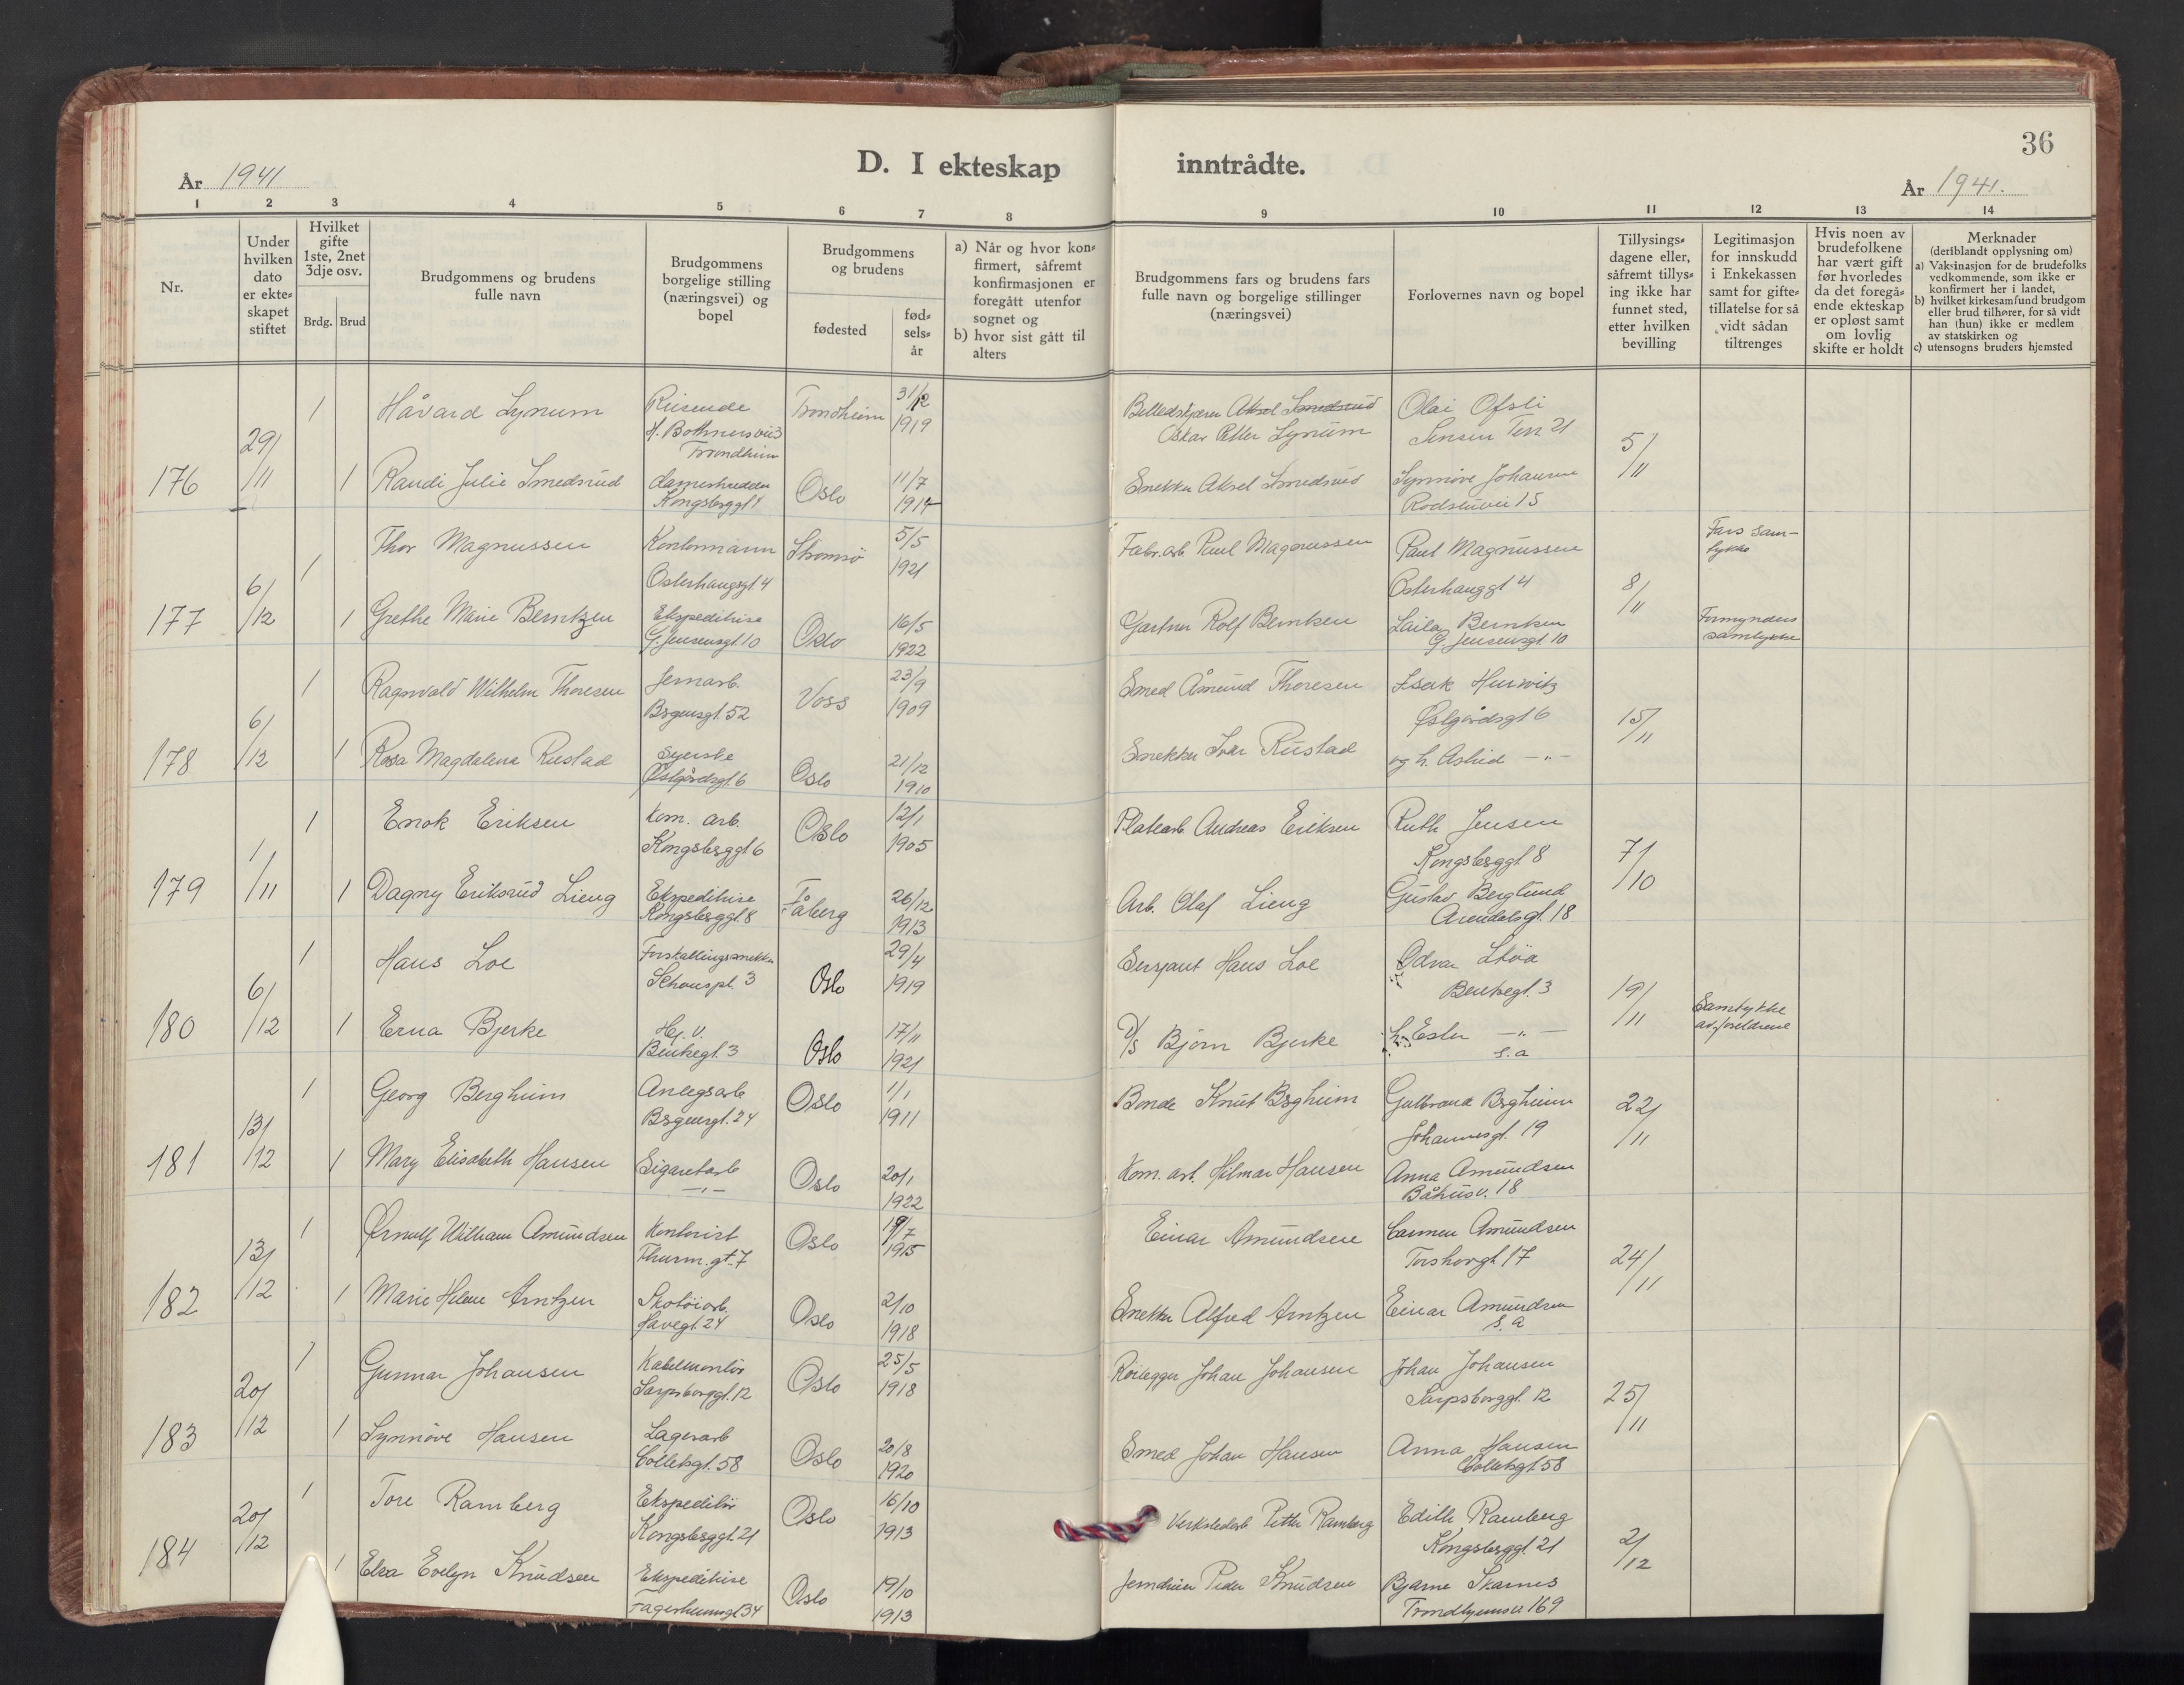 36
D. I ekteskap inntrådte.
År 1941
År 1941.
1 2 3 4 5 6 7 8 9 10 11 12 13 14
Nr.
Under hvilken dato er ekte-skapet stiftet
Hvilket gifte 1ste, 2net 3dje osv.
Brdg. Brud
Brudgommens og brudens fulle navn
Brudgommens borgelige stilling (næringsvei) og bopel
Brudgommens og brudens
fødested
fød-sels-år
a) Når og hvor kon-firmert, såfremt konfirmasjonen er foregått utenfor sognet og
b) hvor sist gått til alters
Brudgommens fars og brudens fars fulle navn og borgelige stillinger (næringsvei)
Forlovernes navn og bopel
Tillysings-dagene eller, såfremt tillys-ing ikke har funnet sted, etter hvilken bevilling
Legitimasjon for innskudd i Enkekassen samt for gifte-tillatelse for så vidt sådan tiltrenges
Hvis noen av brudefolkene har vært gift før hvorledes da det foregå-ende ekteskap er opløst samt om lovlig skifte er holdt
Merknader (deriblandt opplysning om)
a) Vaksinasjon for de brudefolks vedkommende, som ikke er konfirmert her i landet,
b) hvilket kirkesamfund brudgom eller brud tilhører, for så vidt han (hun) ikke er medlem av statskirken og
c) utensogns bruders hjemsted
176 29/11
1 Håvard Lynum Reisende Trondheim 31/12 1919 Oskar Petter Lynum Olai Ofsti
Trondheim
5/11
1 Randi Julie Smedsrud Kongsberggt 4 Oslo 11/7 1914 Snekker Aksel Smedsrud Synnöve Johansen
177 6/12
1 Thor Magnussen Kontormann Strömsö 5/5 1921 Fabr.arb. Paul Magnussen Paul Magnussen Fars sam-tykke
Österhausgt 4 Österhausgt 4
8/11
1 Grethe Marie Berntzen Ekspeditrise Oslo 16/5 1922 Gartner Rolf Berntzen Laila Berntzen Formynders samtykke
G. Jensensgt. 10 G. Jensensgt. 10
178 6/12
1 Ragnvald Wilhelm Thoresen Jernarb. Voss 23/9 1909 Smed Åmund Thoresen Isak Hurwitz
Brgensgt. 52 Østgårdsgt 6
15/11
1 Rosa Magdalena Rustad Syerske Oslo 21/12 1910 Snekker Ivar Rustad og h. Astrid —"—
Østgårdsgt. 6
179 1/11
1 Enok Eriksen Kom. arb. Oslo 12/1 1905 Platearb Andreas Eriksen Ruth Jensen
Kongsberggt 6 Kongsberggt. 8
7/10
1 Dagny Eriksrud Lieng Ekspeditrise Fåberg 26/12 1913 Arb. Olaf Lieng Gustav Berglund
Kongsberggt. 8 Arendalsgt. 18
180 6/12
1 Hans Loe Forskallingssnekker Oslo 29/4 1919 Sersjant Hans Loe Odvar
Schouspl. 3
19/11
1 Erna Bjerke Oslo 17/11 1921 D/s Bjørn Bjerke h. Ester —"— Samtykke av foreldrene
s.a
181 13/12
1 Georg Bergheim Anlegsarb Oslo 1/1 1911 Bonde Knut Brgheim Gulbrand Brgheim
Brgensgt. 24 Johannesgt. 19
22/11
1 Mary Elisabeth Hansen Sigaretarb Oslo 20/1 1922 Kom. arb. Hilmar Hansen Anna Amundsen
—"— Båhusv. 18
182 13/12
1 Ørnulf William Amundsen Kontorist Oslo 19/7 1915 Einar Amundsen Carmen Amundsen
Thurm. gt. 7 Torshovgt 17
24/11
1 Marie Helene Arntzen Skotöiarb. Oslo 2/10 1918 Snekker Alfred Arntzen Einar Amundsen
Havegt. 24 s.a
183 20/12
1 Gunnar Johansen Kabelmontör Oslo 25/5 1918 Rörlegger Johan Johansen Johan Johansen
Sarpsborggt. 12 Sarpsborggt. 12
25/11
1 Synnöve Hansen Lagerarb Oslo 20/8 1920 Smed Johan Hansen Anna Hansen
Colletsgt. 58 Colletsgt. 58
184 20/12
1 Tore Ramberg Ekspeditör Oslo 16/10 1913 Verkstedarb Petter Ramberg Edith Ramberg
Kongsberggt. 21 Kongsberggt. 21
2/12
1 Elsa Evelyn Knudsen Ekspeditrise Oslo 19/10 1913 Jerndreier Peder Knudsen Bjarne Skarnes
Fagerheimgt 34 Trondhjemsv 169